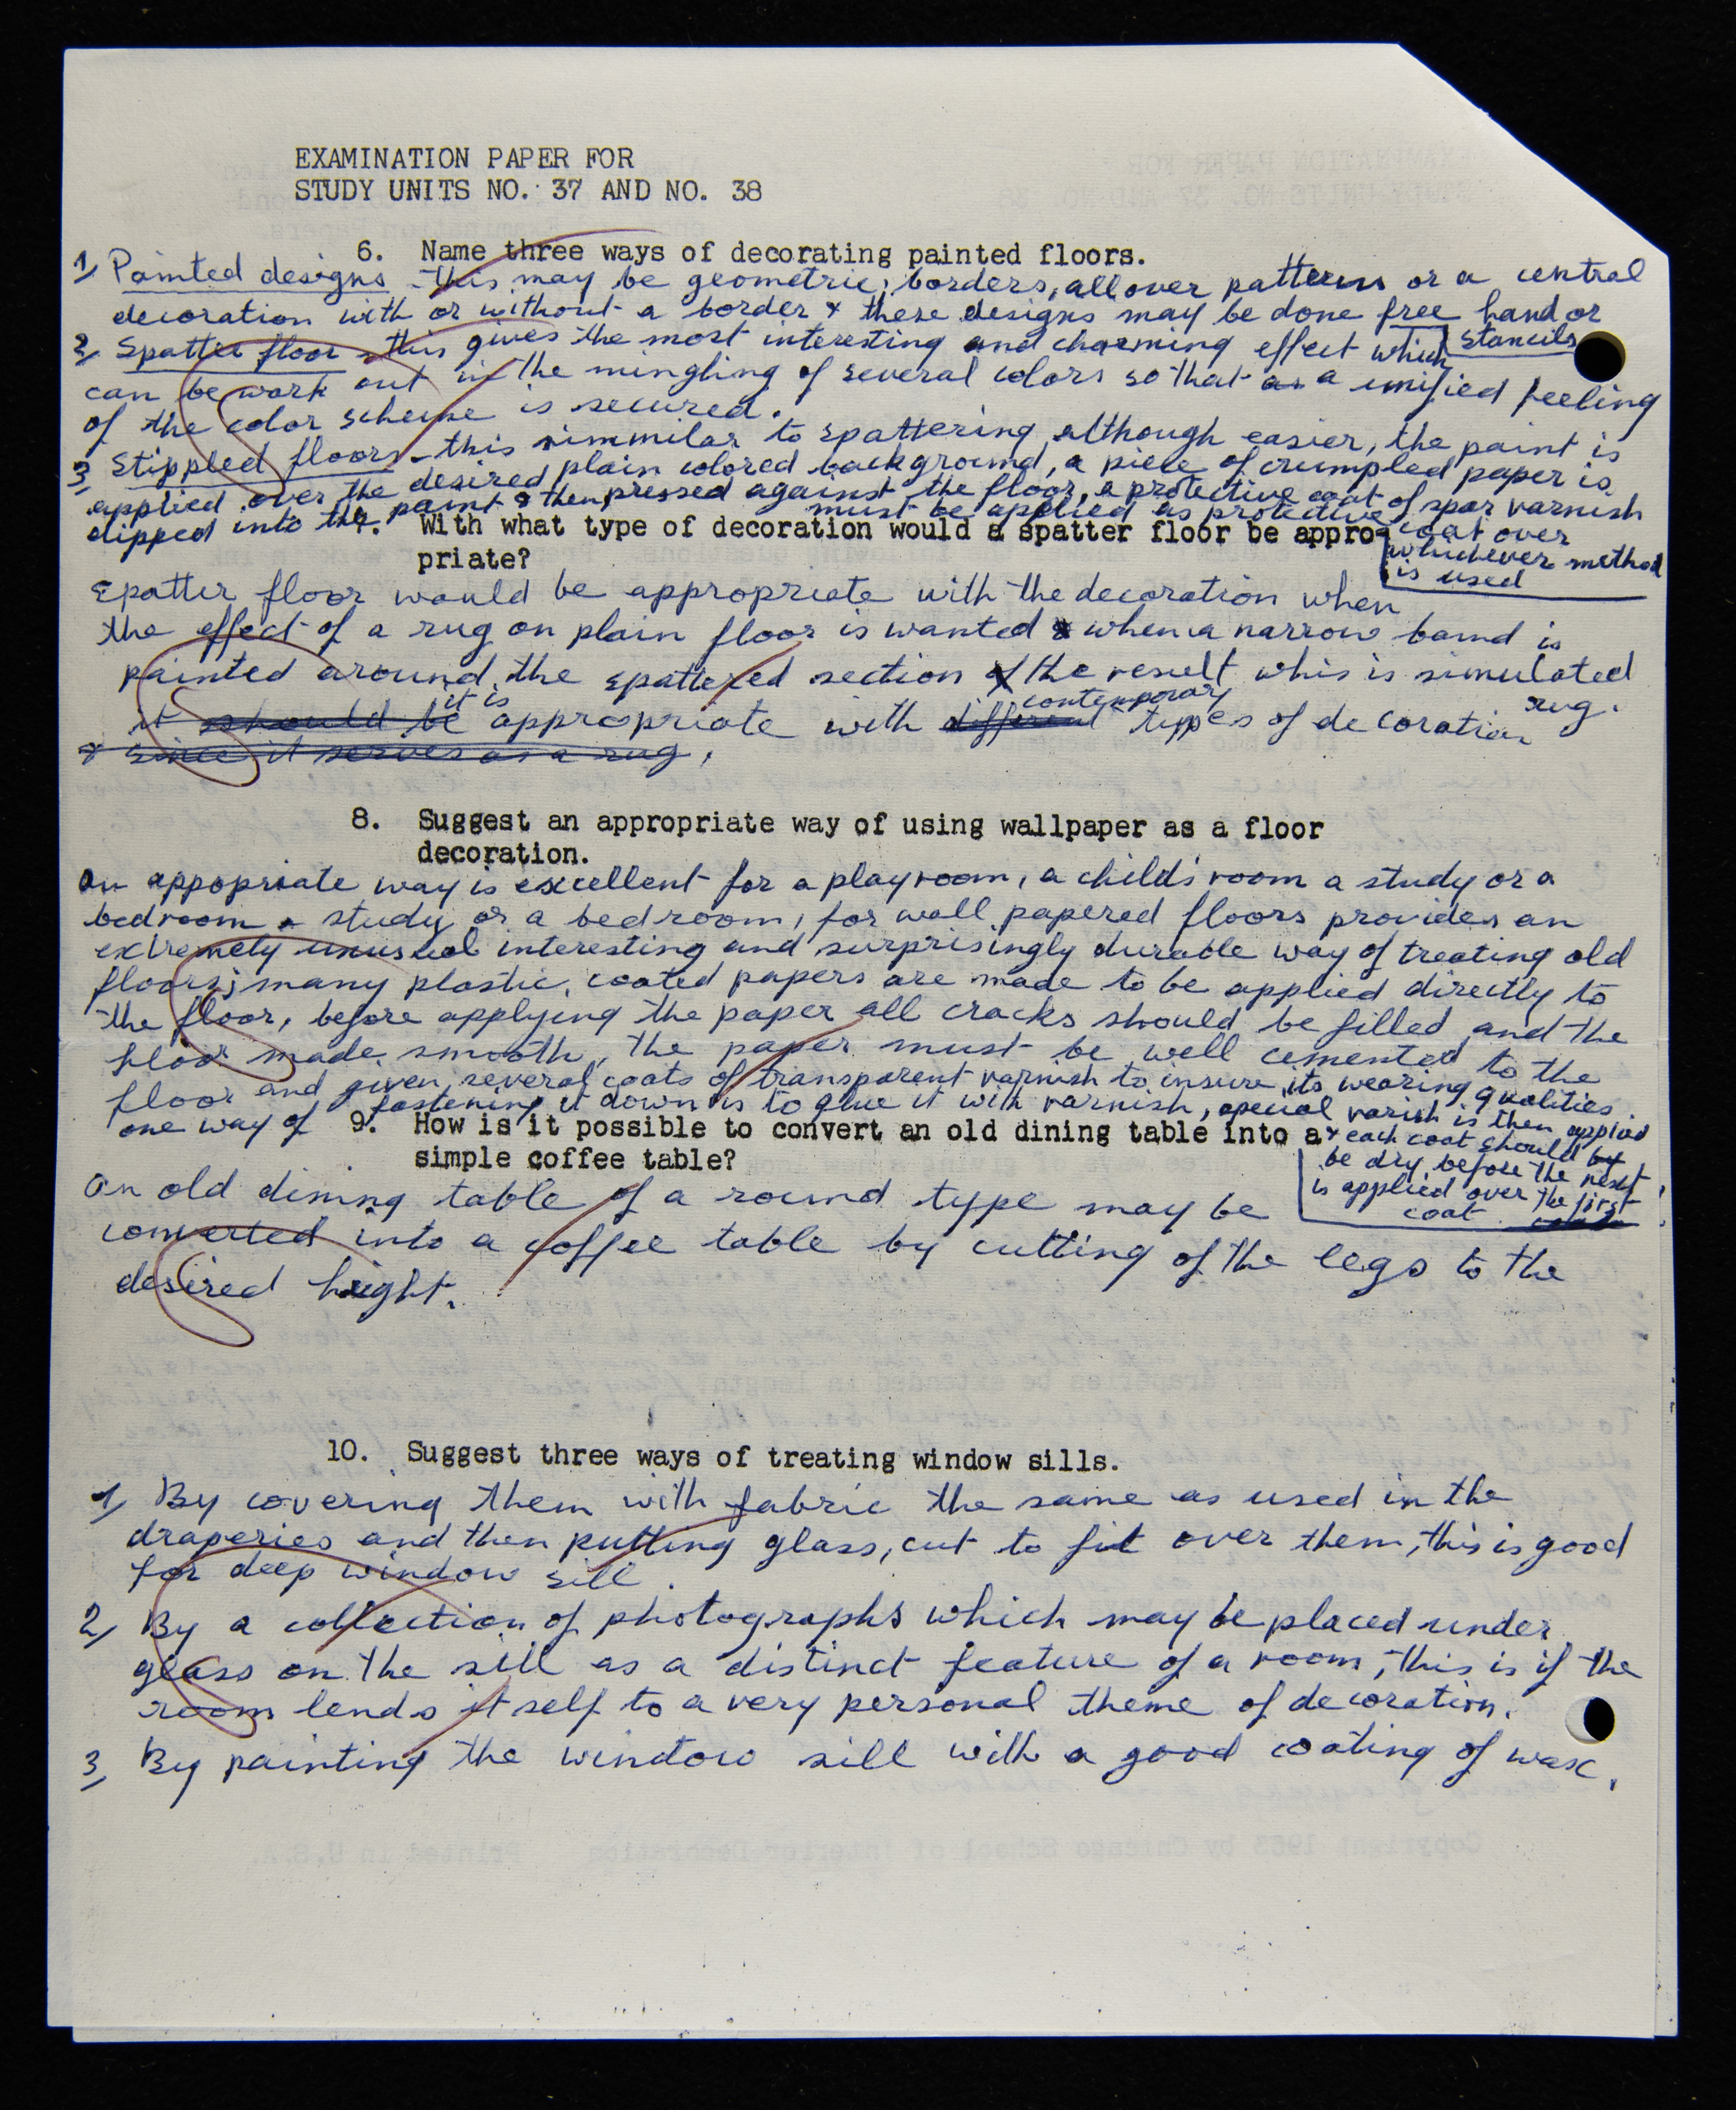 EXAMINATION PAPER FOR
STUDY UNITS NO. 37 AND NO. 38
6. Name three ways of decorating painted floors.
1, Painted designs - this may be geometric, borders, all over patterns or a central
decoration with or without a border & these designs may be done free hand or
stancils
2, Spatter floor - this gives the most interesting and charming effect which
can be work out in the mingling of several colors so that as a unified feeling
of the color scheme is secured.
3, Stippled floors - this simmilar to spattering, although easier, the paint is
applied over the desired plain colored background, a piece of crumpled paper is
dipped into the paint & then pressed against the floor, a protective coat of spar varnish
must be applied as protective coat over
whichever method
is used
7. With what type of decoration would a spatter floor be appro-
priate?
Spatter floor would be appropriate with the decoration when
the effect of a rug on plain floor is wanted & when a narrow band is
painted around the spattered section of the result whis is simulated
rug.
it should be it is appropriate with different contemporary types of decoration
& since it serves as a rug.
8. Suggest an appropriate way of using wallpaper as a floor
decoration.
An appopriate way is excellent for a playroom, a child's room a study or a
bedroom & study or a bedroom, for wall papered floors provides an
extremely unusual interesting and surprisingly durable way of treating old
floors; many plastic, coated papers are made to be applied directly to
the floor, before applying the paper all cracks should be filled and the
floor made smooth, the paper must be well cemented to the
floor and given several coats of transparent varnish to insure its wearing qualities.
one way of fastening it down is to glue it with varnish, special varish is then applied
& each coat should by
be dry before the next
is applied over the first
coat
9. How is it possible to convert an old dining table into a
simple coffee table?
An old dining table of a round type may be
converted into a coffee table by cutting of the legs to the
desired height.
10. Suggest three ways of treating window sills.
1, By covering them with fabric the same as used in the
draperies and then putting glass, cut to fit over them, this is good
for deep window sill.
2, By a collection of photographs which may be placed under
glass on the sill as a distinct feature of a room, this is if the
room lends it self to a very personal theme of decoration.
3, By painting the window sill with a good coating of wax.